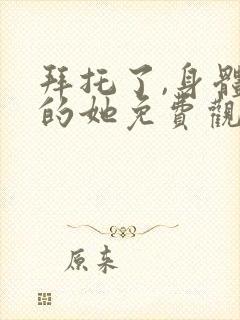 拜托了,身體
的她免費觀
原来